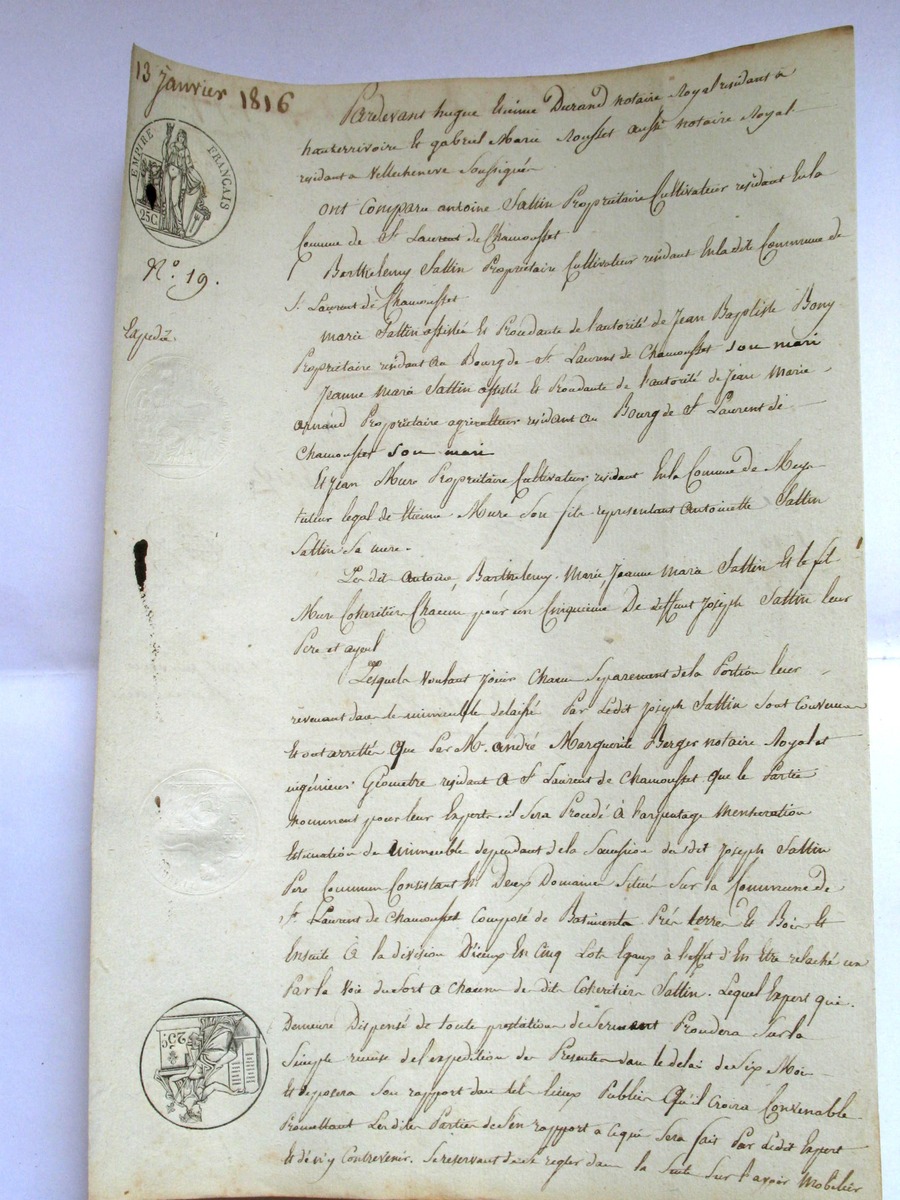 13 Janvier 1816
EMPIRE FRANÇAIS
25C
No. 19.
Expedié
Pardevant hugue Etienne Durand notaire Royal residant a
hauterrivoire Et gabriel Marie Rousset aussi notaire Royal
residant a Villecheneve Soussignés
ont Comparu antoine Sattin Proprietaire Cultivateur residant En la
Comune de St Laurent de Chamousset
Berthelemy Sattin Proprietaire Cultivateur residant En ladite Commune de
St Laurent de Chamousset
marie Sattin assistée Et Proudante de l'autorité de Jean Baptiste Bony
Proprietaire residant au Bourg de St Laurent de Chamousset son mari
Jeanne Maria Sattin assistée Et Proudante de l'autorité de Jean Marie
arnaud Proprietaire agriculteur residant au Bourg de St Laurent de
Chamousset son mari
Et Jean Mure Proprietaire Cultivateur residant En la Commune de Meys
tuteur legal de Etienne Mure Son fils representant Antoinette Sattin
Sattin Sa mere.
Lesdit Antoine, Barthelemy, Marie, Jeanne Maria Sattin Et le fils
Mure Coheritiers Chacun pour un Cinquieme De deffunt Joseph Sattin leur
Pere et ayeul
Lesquels Voulant Jouir Chacun Separement de la Portion leur
revenant dans les immeubles delaissés Par Ledit Joseph Sattin Sont Convenus
Et ont arrettés Que Par Me. André Marguerite Berger notaire Royal et
ingénieur Géometre residant a St Laurent de Chamousset que les Parties
nomment pour leur Expert. il Sera Procédé à l'arpentage Mensuration
Estimation des immeubles dependant de la Succession dudit Joseph Sattin
Pere Commun Consistant En Deux Domaines Situés Sur la Commune de
St. Laurent de Chamousset Composé de Batiments Prés terres Et Bois Et
Ensuite À la division D'iceux En Cinq Lots Egaux à l'effet d'En Etre relaché un
Par la Voie du Sort a Chacun des dits Coheritiers Sattin. Lequel Expert qui
Demeure Dispensé de toute prestation de Serment Proudera Sur la
Simple remise de l'expedition des Presentes dans le delai de Six Mois
Et deposera Son rapport dans tels lieux Publics Qu'il Croira Convenable
Promettant Lesdites Parties de S'en rapporter a Ce qui Sera fait Par Ledit Expert
Et de n'y Contrevenir. Se reservant de se regler dans la Suite Sur l'avoir Mobilier
25C